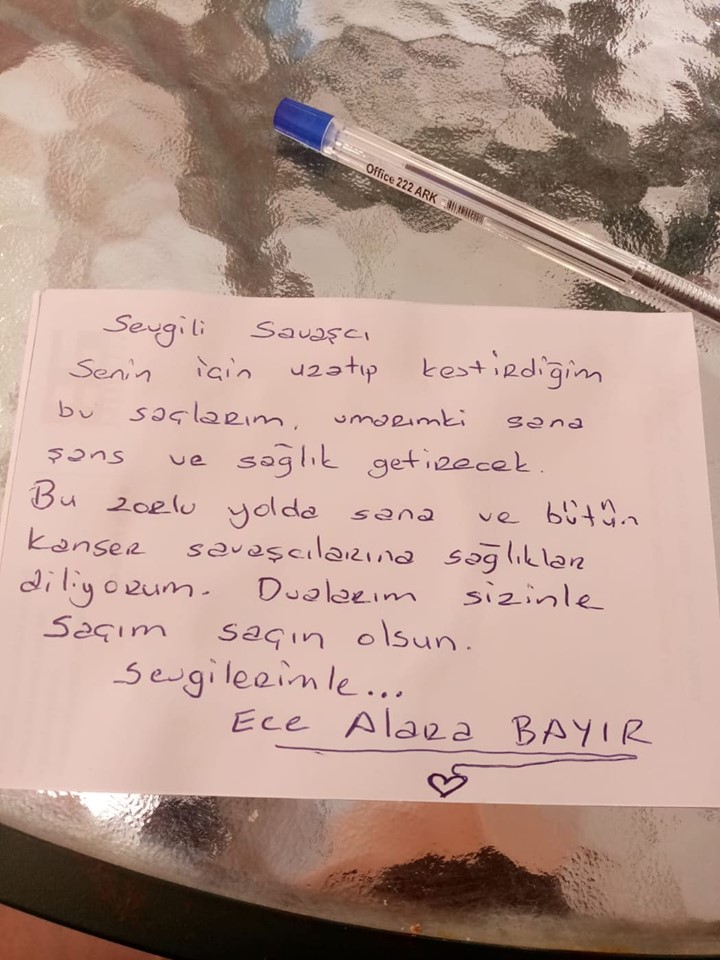 Office 222 ARK
Sevgili Savaşcı
Senin için uzatıp kestirdiğim
bu saçlarım, umarımki sana
şans ve sağlık getirecek.
Bu zorlu yolda sana ve bütün
kanser savaşcılarına sağlıklar
diliyorum. Dualarım sizinle
Saçım saçın olsun.
Sevgilerimle...
Ece Alara BAYIR